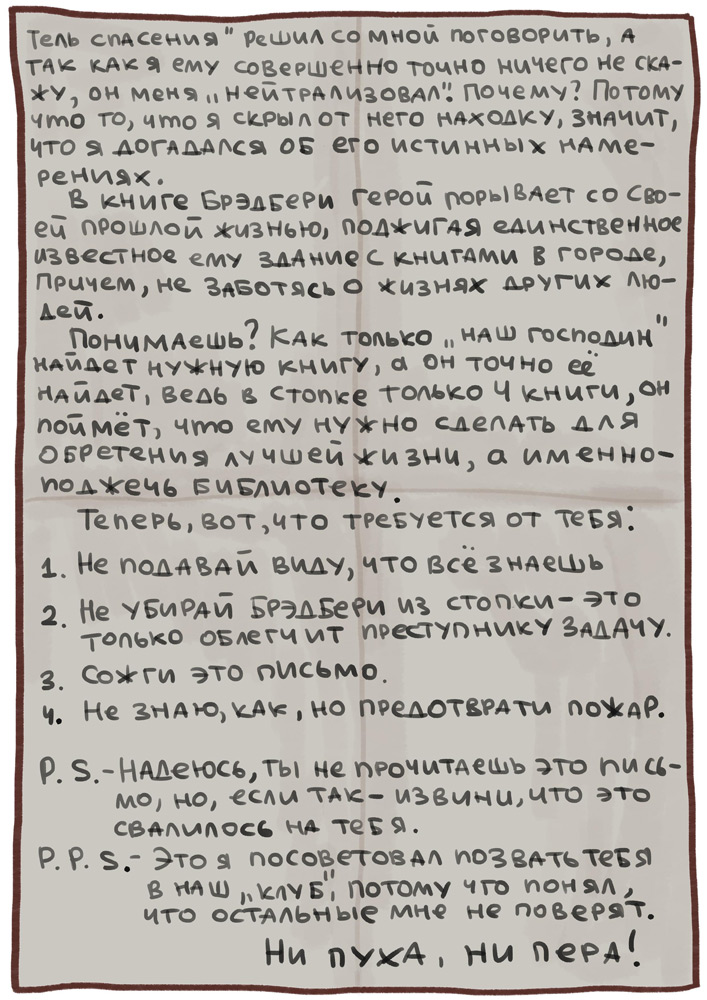 тель спасения" решил со мной поговорить, а
так как я ему совершенно точно ничего не ска-
жу, он меня „нейтрализовал". Почему? Потому
что то, что я скрыл от него находку, значит,
что я догадался об его истинных наме-
рениях.
В книге Брэдбери герой порывает со сво-
ей прошлой жизнью, поджигая единственное
известное ему здание с книгами в городе,
причем, не заботясь о жизнях других лю-
дей.
Понимаешь? Как только „наш господин"
найдет нужную книгу, а он точно её
найдет, ведь в стопке только 4 книги, он
поймёт, что ему нужно сделать для
обретения лучшей жизни, а именно-
поджечь библиотеку.
Теперь, вот, что требуется от тебя:
1. Не подавай виду, что всё знаешь
2. Не убирай Брэдбери из стопки- это
только облегчит преступнику задачу.
3. Сожги это письмо.
4. Не знаю, как, но предотврати пожар.
P. S.-Надеюсь, ты не прочитаешь это пись-
мо, но, если так- извини, что это
свалилось на тебя.
P. P. S.- Это я посоветовал позвать тебя
в наш „клуб", потому что понял,
что остальные мне не поверят.
Ни пуха, ни пера!